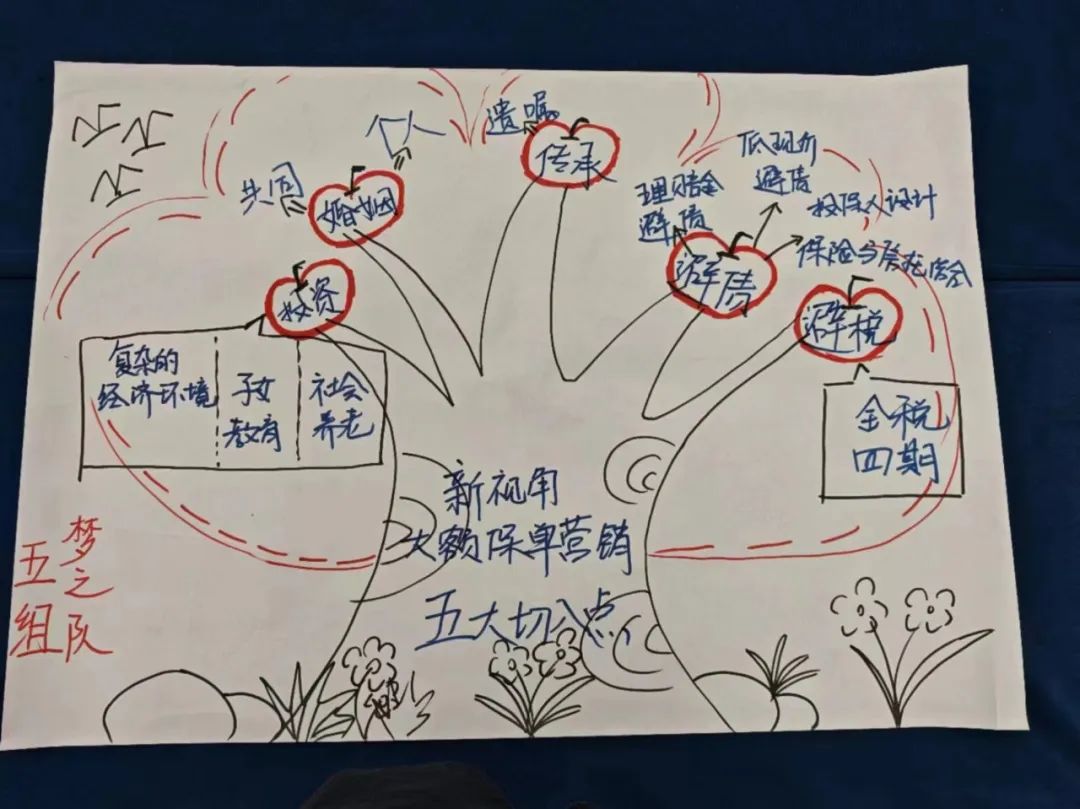 遗嘱
传承
个人
共同
婚姻
低现价
避债
理赔金
避债
投保人设计
避债
保险与信托结合
投资
避税
复杂的
经济环境
子女
教育
社会
养老
全税
四期
新视角
大额保单营销
五大切入点
五组
梦之队